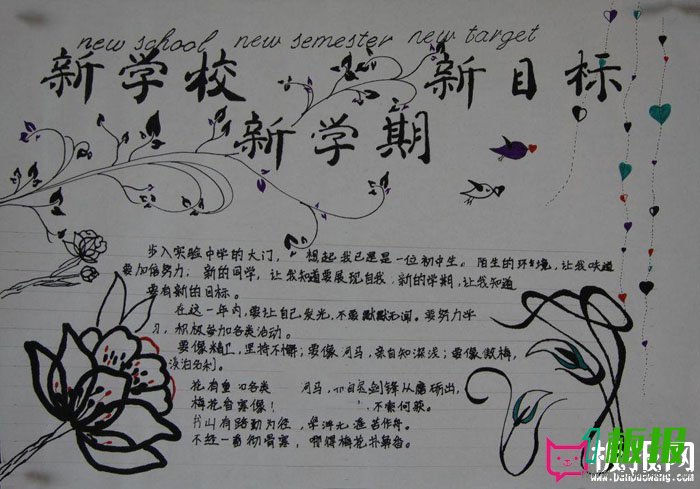 new school new semester new target
新学校 新目标
新学期
步入实验中学的大门, 想起我已是是一位初中生。陌生的环境,让我知道
要加倍努力; 新的同学,让我知道要展现自我,新的学期,让我知道
要有新的目标。
在这一年内,要让自己发光,不要默默无闻。要努力学
习,积极参加各类活动。
要像精卫,坚持不懈;要像河马,亲自知深浅;要像傲梅,
淡泊名利。
花有重 各类 河马, 剑锋从磨砺出,
梅花自寒 ! 不 何获。
书山有路勤为径, 学海无涯苦作舟。
不经一番彻骨寒, 哪得梅花扑鼻香。
板报网
www.banbaowang.com